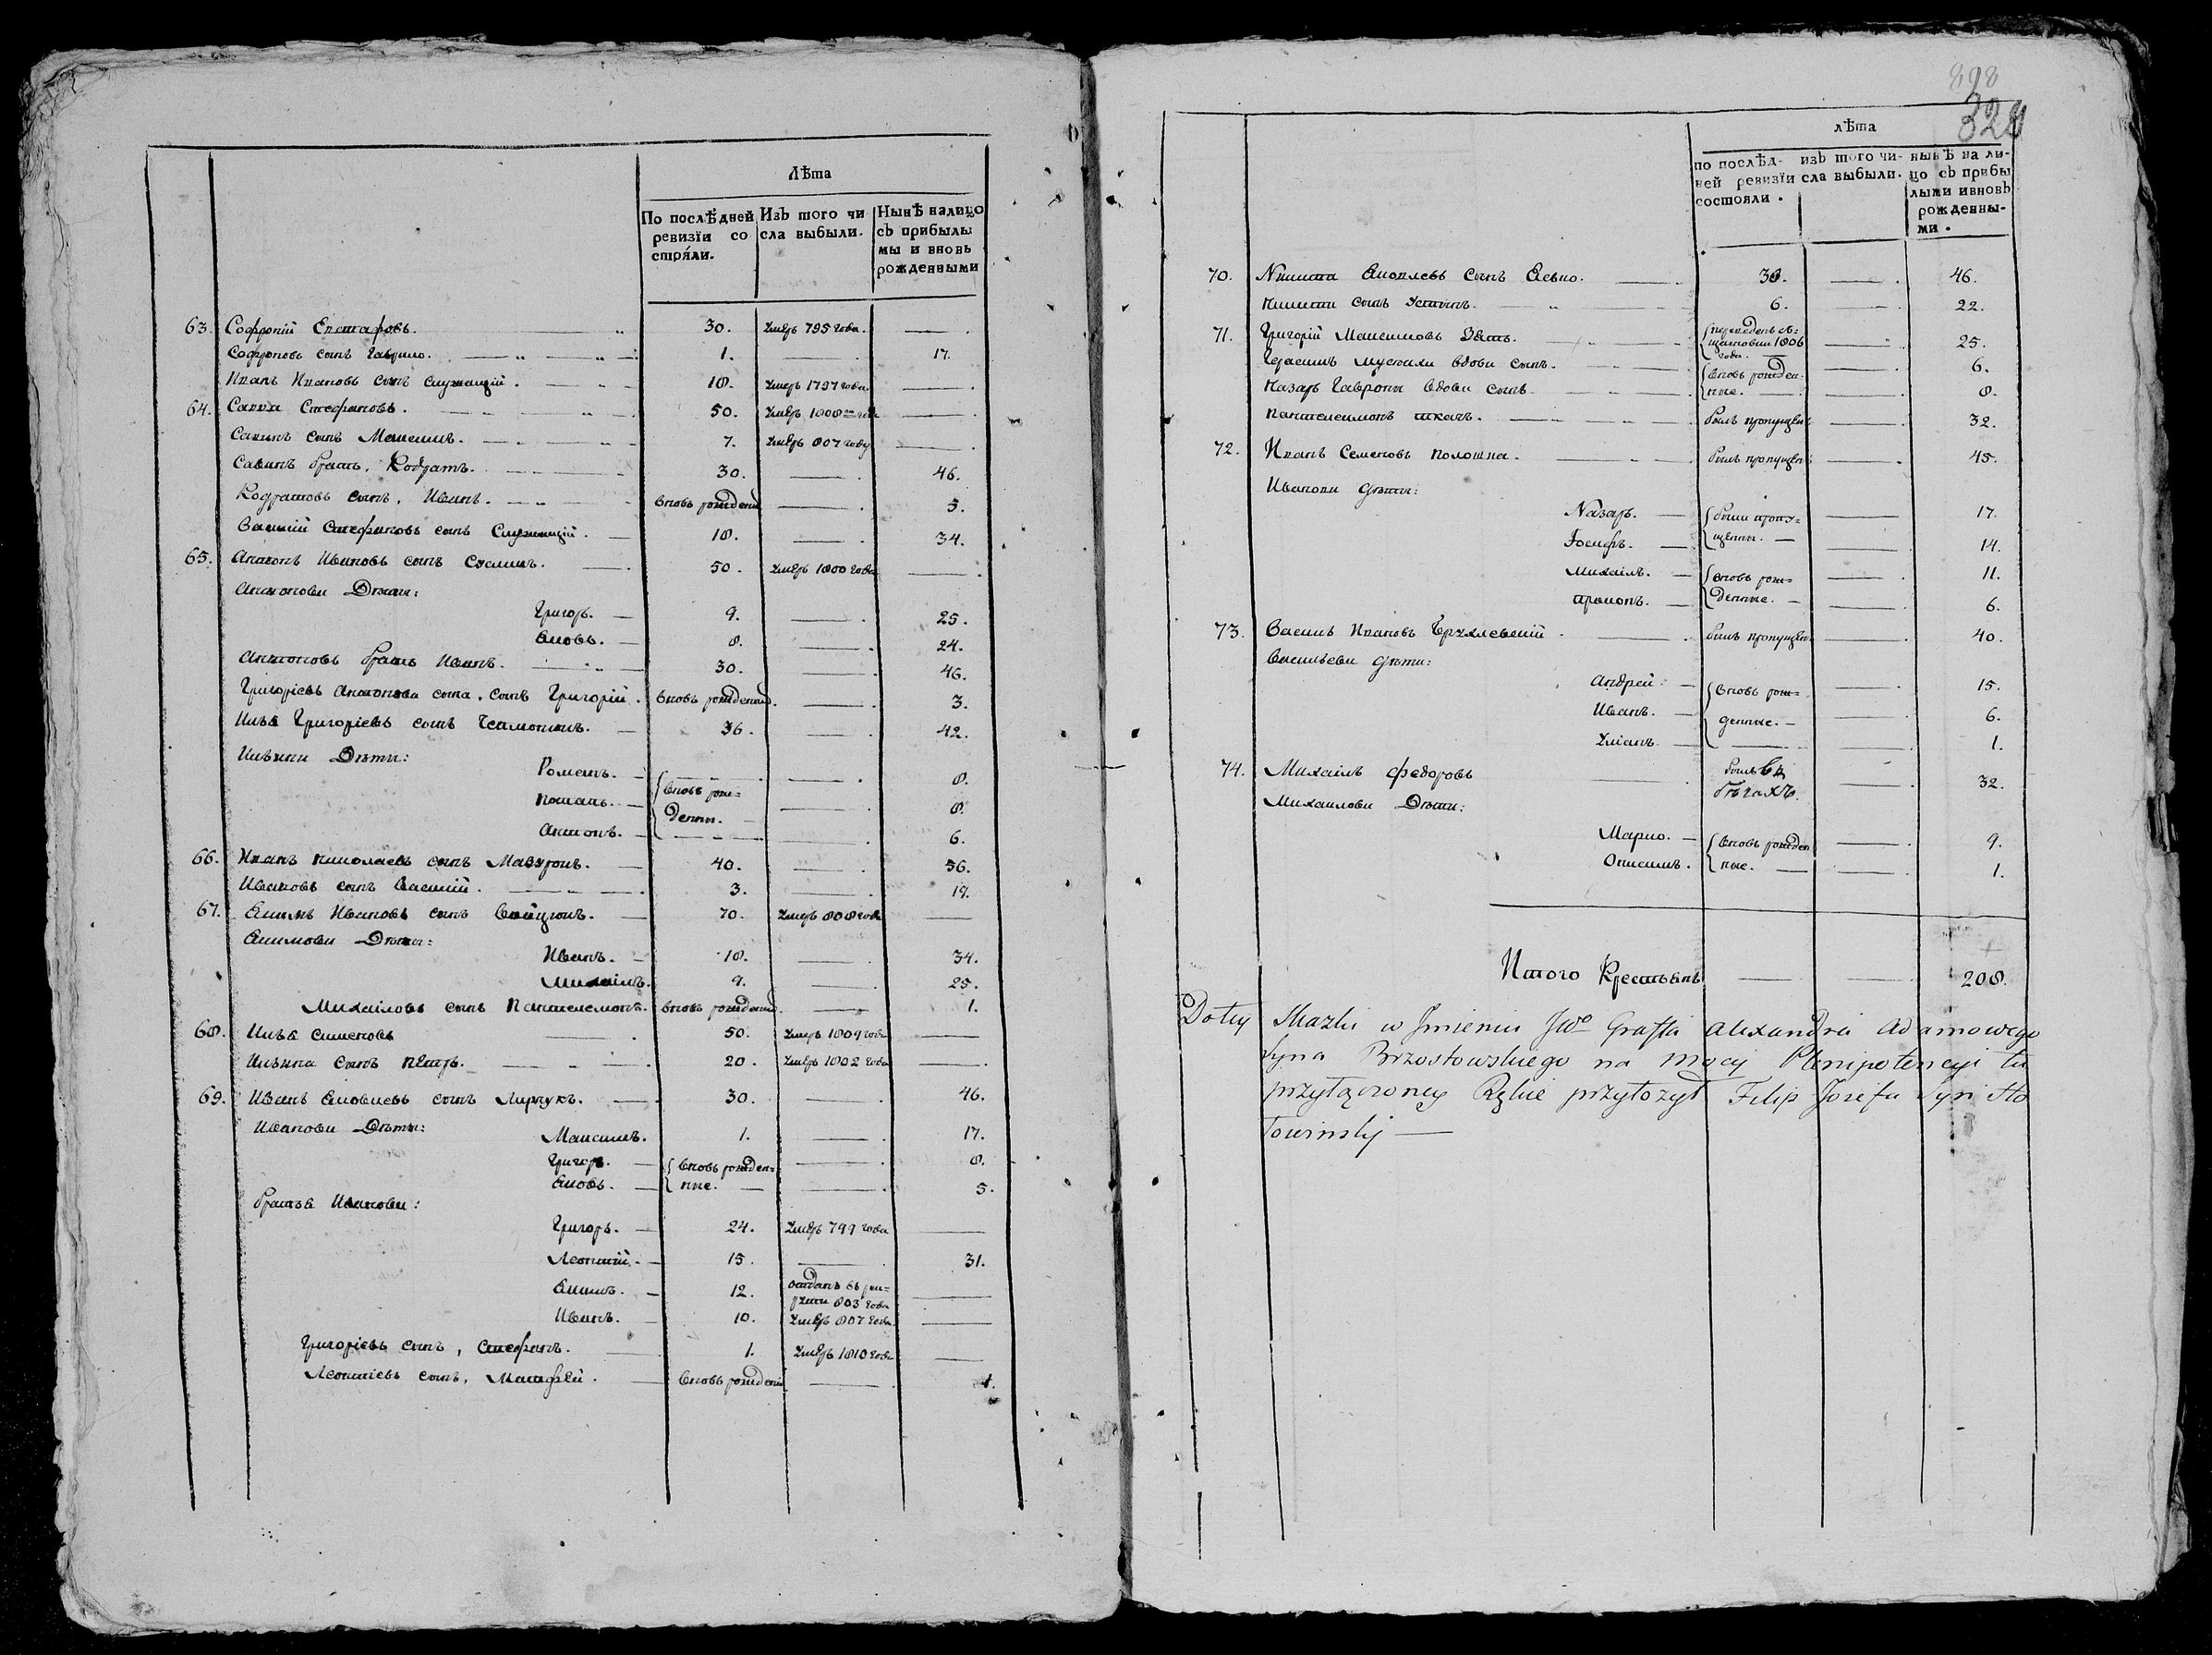 Лѣта
По послѣдней ревизїи состояли.
Изъ того числа выбыли.
Нынѣ налицо съ прибылыми и вновь рожденными
63. Софроній Евстафовъ. 30. Умеръ 795 года.
Софроновъ сынъ Гаврило. 1. 17.
Иванъ Ивановъ сынъ Служащій. 18. Умеръ 1797 года
64. Савва Стефановъ. 50. Умеръ 1808 го года
Савинъ сынъ Максимъ. 7. Умеръ 807 году
Савинъ братъ, Кодратъ. 30. 46.
Кодратовъ сынъ, Иванъ. вновь рожденъ 3.
Василій Стефановъ сынъ Служащій. 18. 34.
65. Антонъ Ивановъ сынъ 50. Умеръ 1800 года
Антонови Дѣти:
Григоръ. 9. 25.
Яковъ. 8. 24.
Антоновъ братъ Иванъ. 30. 46.
Григоріевъ Антонова сына, сынъ Григорій. вновь рожденный. 3.
Илья Григоріевъ сынъ 36. 42.
Ильини Дѣти:
Романъ. 8.
вновь рож=
Потапъ. 8.
денны.
Антонъ. 6.
66. Иванъ Николаевъ сынъ Мазуронъ. 40. 56.
Ивановъ сынъ Василій. 3. 19.
67. Якимъ Ивановъ сынъ 70. Умеръ 808 года
Якимови Дѣти:
Иванъ. 18. 34.
Михаилъ. 9. 25.
Михаиловъ сынъ Пантелемонъ. вновь рожденый. 1.
68. Илья Сименовъ 50. Умеръ 1809 года
Ильина сынъ Пётръ. 20. Умеръ 1802 года
69. Иванъ Яковлевъ сынъ Лирчукъ. 30. 46.
Иванови Дѣти:
Максимъ. 1. 17.
Григоръ. вновь рожден= 8.
Яковъ. ные. 5.
Братья Иванови:
Григоръ. 24. Умеръ 799 года
Леонтій. 15. 31.
Якимъ. 12. отданъ въ рек=
руты 803 года
Иванъ. 10. Умеръ 807 года.
Григоріевъ сынъ, Стефанъ. 1. Умеръ 1810 года
Леонтіевъ сынъ, Матфей. вновь рожденъ 1.
898
328
лѣта
по послѣдней ревизїи состояли.
изъ того числа выбыли.
нынѣ на лицо съ прибылыми и вновь рожденными.
70. Никита Яковлевъ сынъ 30. 46.
Никити сынъ Устинъ. 6. 22.
71. Григорій Максимовъ Зять. 1806 года. 25.
Герасимъ вдови сынъ. вновь рожден= 6.
Назаръ Гаврони вдови сынъ. ные. 8.
Пантелеимонъ ткачъ. былъ пропущенъ 32.
72. Иванъ Семеновъ Полошка. былъ пропущенъ 45.
Иванови дѣти:
Назаръ. были пропу= 17.
Іосифъ. щенны. 14.
Михаилъ. вновь рож= 11.
денные. 6.
73. Василь Ивановъ былъ пропущенъ 40.
Васильеви дѣти:
Андрей. вновь рож= 15.
Иванъ. денные. 6.
1.
74. Михаилъ Федоровъ былъ въ бѣгахъ. 32.
Михаилови Дѣти:
Марко. вновь рожден 9.
Онисимъ. ные. 1.
Итого Крестьянъ 208.
Do tey Skazki w Jmieniu JWo Graffa Alexandra Adamowego
Syna Brzostowskiego na mocy Plenipotencyi tu
przyłączoney Rękie przyłożył Filip Josefa Syn Sło
towinskj